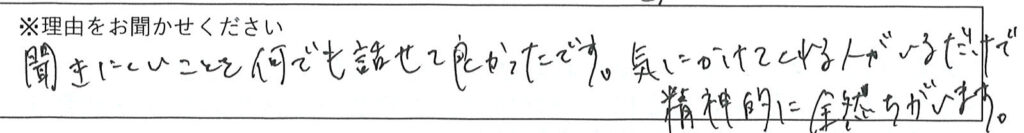 ※理由をお聞かせください
聞きにくいことを何でも話せて良かったです。気にかけてくれる人がいるだけで
精神的に全然ちがいます。